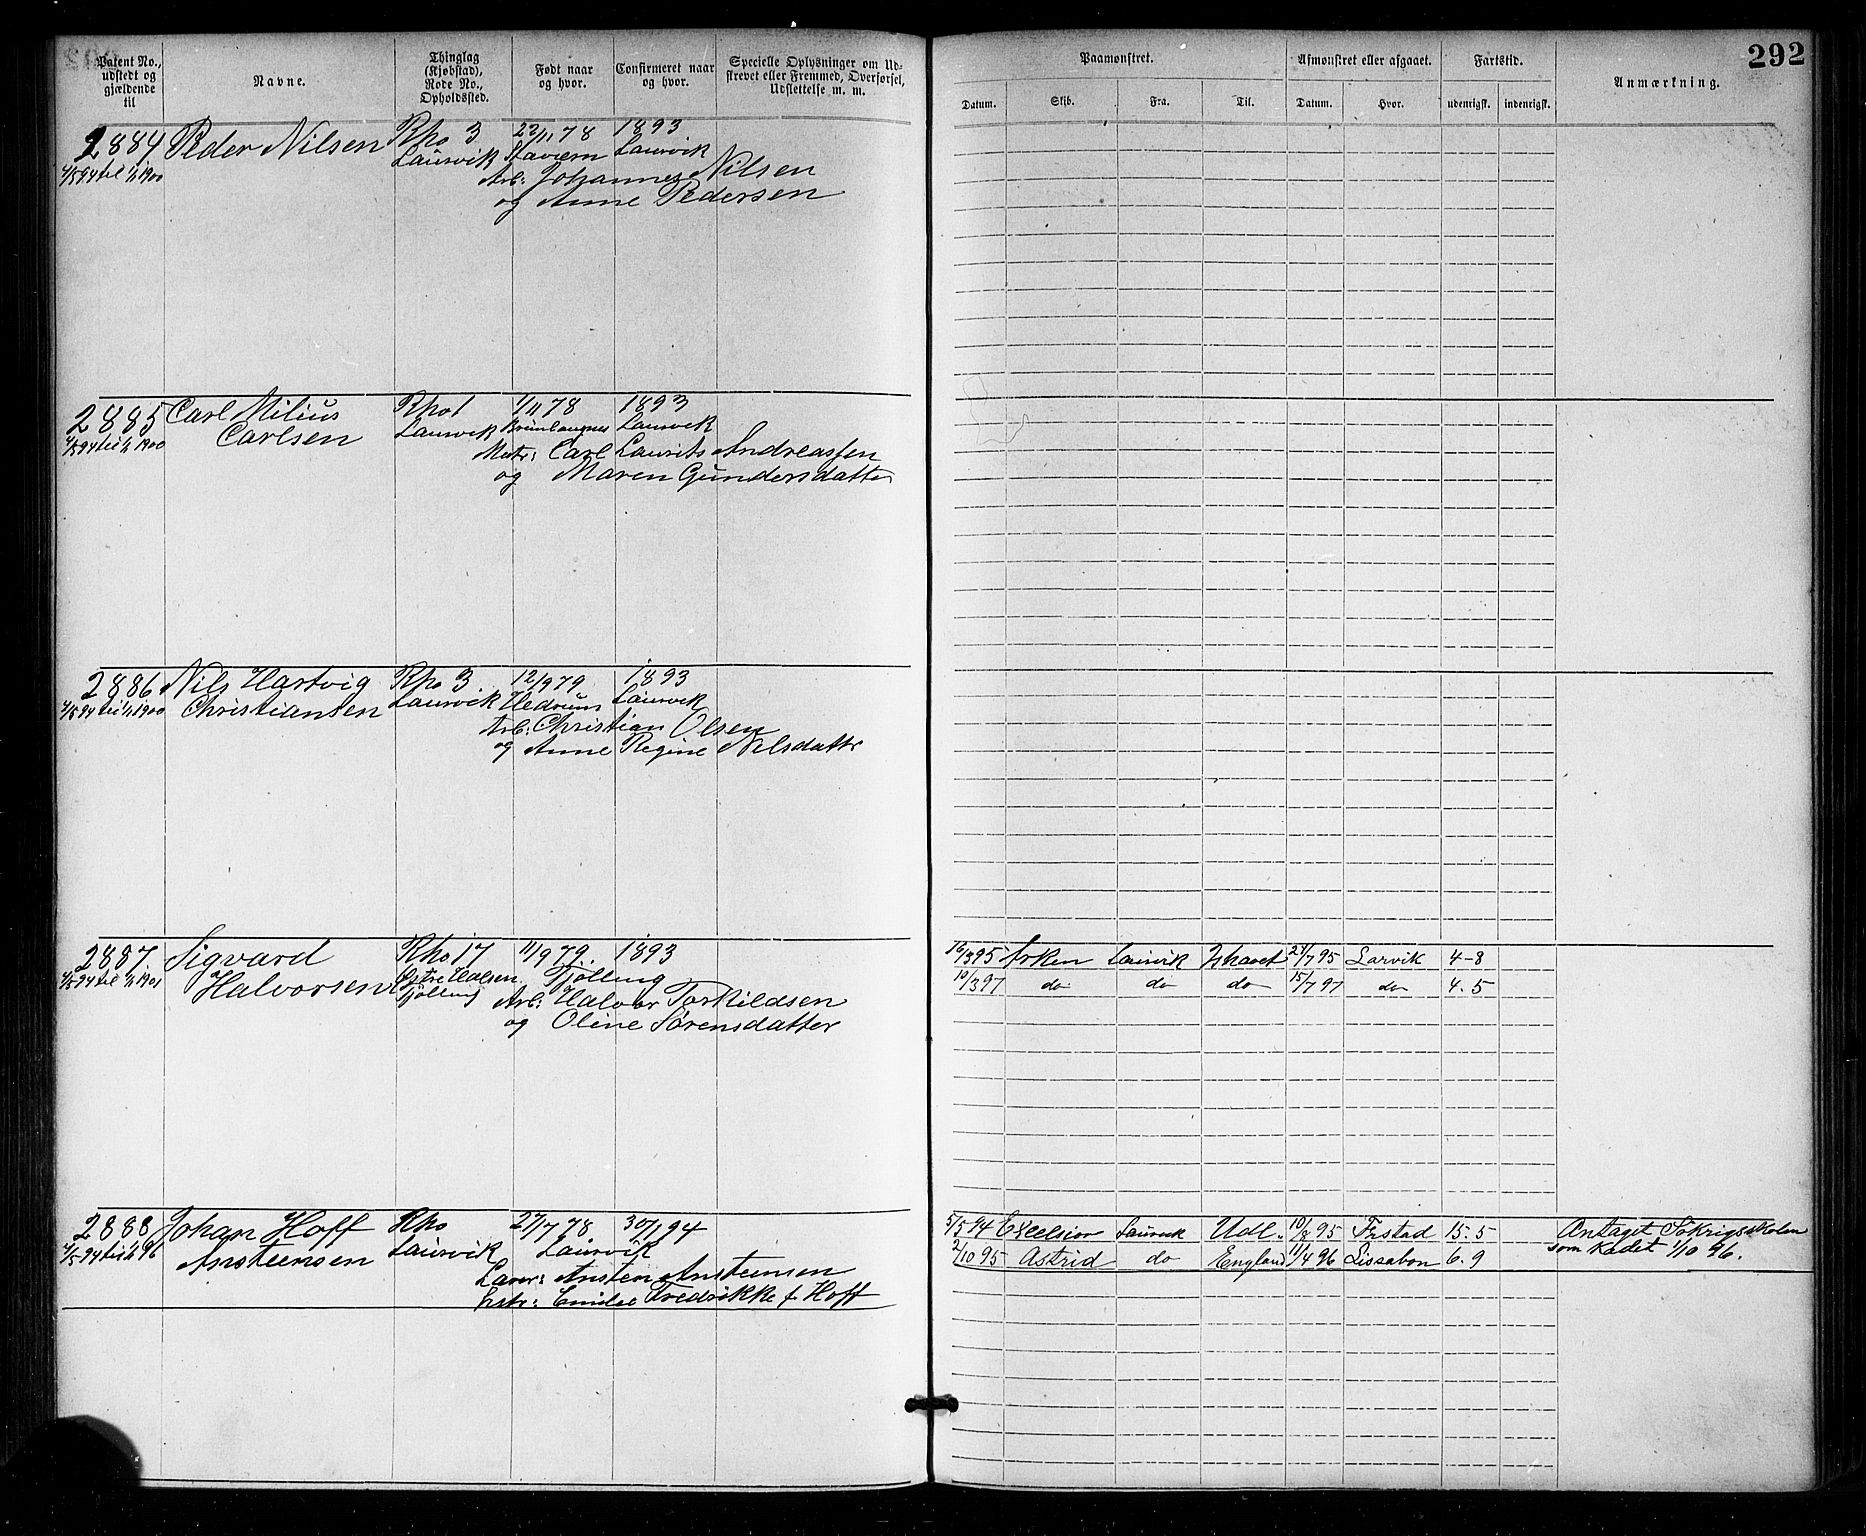 292
Patent No., udstedt og gjældende til
Navne.
Thinglag (Kjøbstad), Rode No., Opholdssted.
Født naar og hvor.
Confirmeret naar og hvor.
Specielle Oplysninger om Udskrevet eller Fremmed, Overførsel, Udslettelse m. m.
Paamønstret.
Afmønstret eller afgaaet.
Fartstid.
Anmærkning.
Datum. Skib. Fra. Til. Datum. Hvor. udenrigsk. indenrigsk.
2884 Peder Nilsen Rho 3 22/11 78 1893
4/5 94 til 1/1 1900 Laurvik Stavern Laurvik
Arb: Johannes Nilsen
og Anne Pedersen
2885 Carl Milius Rho 1 1/11 78 1893
4/5 94 til 1/1 1900 Carlsen Laurvik Brunlaugnes Laurvik
Matr: Carl Laurits Andreassen
og Maren Gundersdatter
2886 Nils Hartvig Rho 3. 12/9 79 1893
4/5 94 til 1/1 1900 Christiansen Laurvik Hedrum Laurvik
Arb: Christian Olsen
og Anne Regine Nilsdattr
2887 Sigvard Rho 17 11/9 79. 1893
4/5 94 til 1/1 1901 Halvorsen Østre Halsen Tjølling
Tjølling Arb: Halvor Torkildsen
og Oline Sørensdatter
16/3 95 Arken Laurvik Ishavet 24/7 95 Larvik 4-8
10/3 97 do do do 15/7 97 do 4.5
2888 Johan Hoff Rho 27/7 78 30/1 94
4/5 94 til 1/1 96 Ansteensen Laurvik Laurvik
Ansten Ansteensen
Hstr: Emilie Fredrikke f Hoff
5/5 94 Excelsior Laurvik Udl. 10/8 95 Frstad 15.5 Antaget Søkrigsskolen
2/10 95 Astrid do England 11/4 96 Lissabon 6.9 som Kadet 1/10 96.